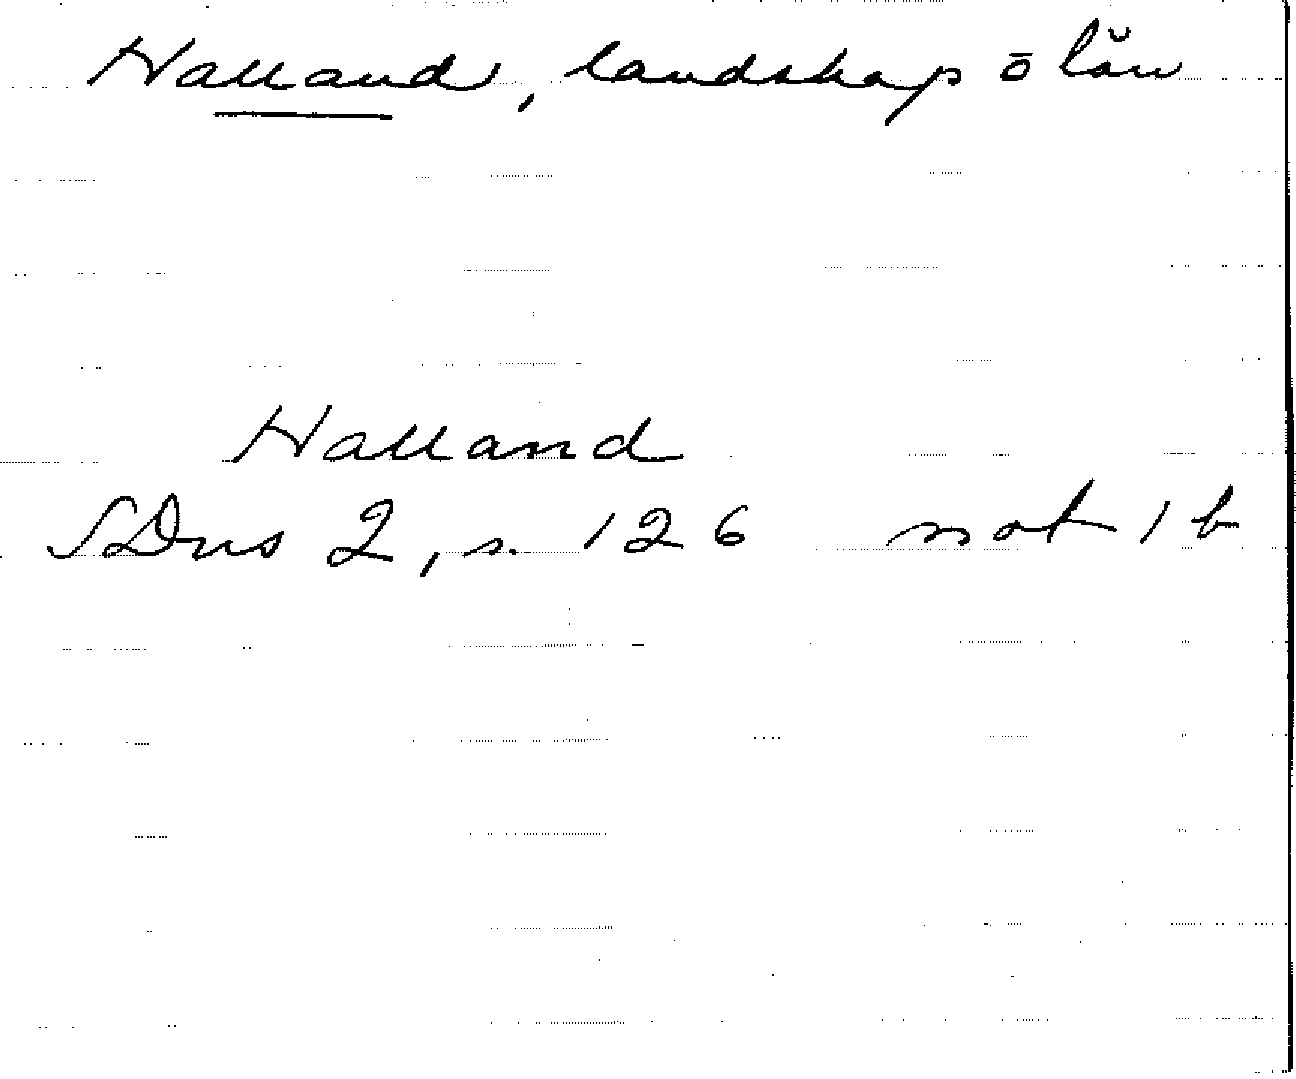 Halland, landskap ō län
Halland
SDns 2, s. 126 not 1 b